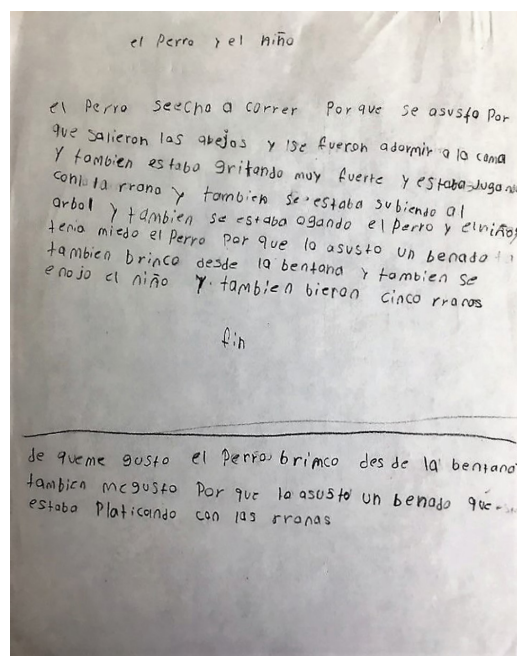 el Perro y el niño
el Perro seecho a correr Porque se asusto Por
que salieron las abejas y se fueron adormir a la cama
Y tambien estaba gritando muy fuerte y estaba Jugando
con la rrana y tambien se estaba subiendo al
arbol y tambien se estaba ogando el perro y elniño
tenia miedo el Perro Por que lo asusto un benado
tambien brinco desde la bentana y tambien se
enojo el niño Y tambien bieron cinco rranas
fin
de queme gusto el Perro brimco des de la bentana
tambien megusto Por que lo asusto un benado que
estaba Platicando con las rranas